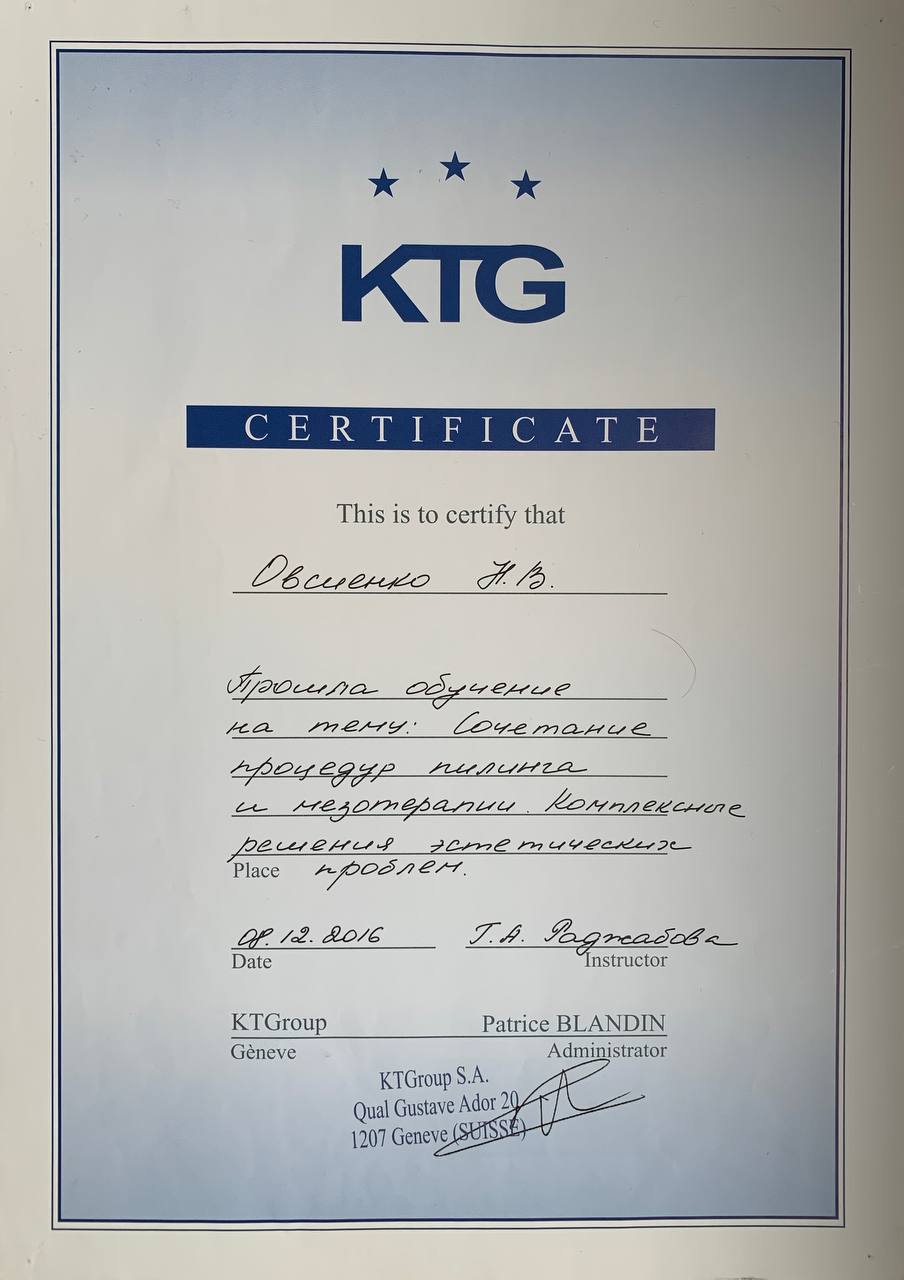 KTG
CERTIFICATE
This is to certify that
Овсиенко Н.В.
Прошла обучение
на тему: Сочетание
процедур пилинга
и мезотерапии. Комплексные
решения эстетических
Place проблем.
08.12.2016 Т.А. Раджабова
Date Instructor
KTGroup Patrice BLANDIN
Gèneve Administrator
KTGroup S.A.
Qual Gustave Ador 20
1207 Geneve (SUISSE)